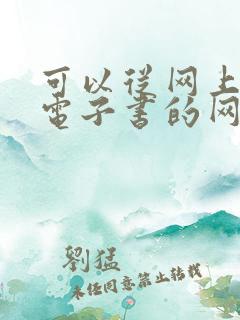 可以從网上
電子書的网
劉猛
未經同意禁止轉載